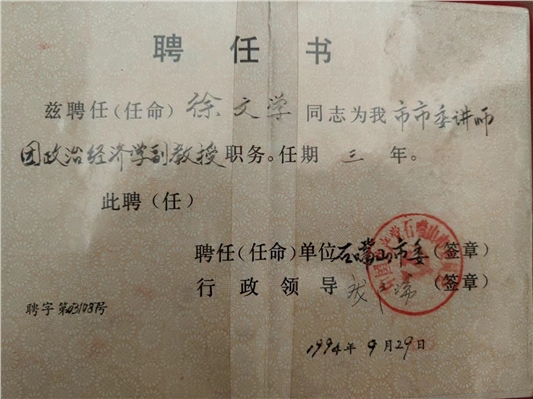 聘任书
兹聘任(任命)徐文学同志为我市市委讲师
团政治经济学副教授职务。任期三年。
此聘(任)
聘任(任命)单位石嘴山市委(签章)
行政领导(签章)
聘字第03108号
1994年9月29日